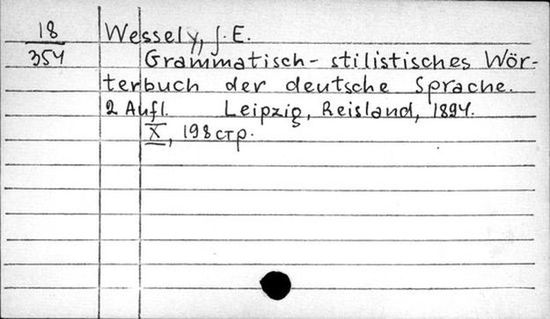 18
354
Wessely, J. E.
Grammatisch-stilistisches Wör-
terbuch der deutsche Sprache.
2 Aufl. Leipzig, Reisland, 1894.
X, 198 стр.